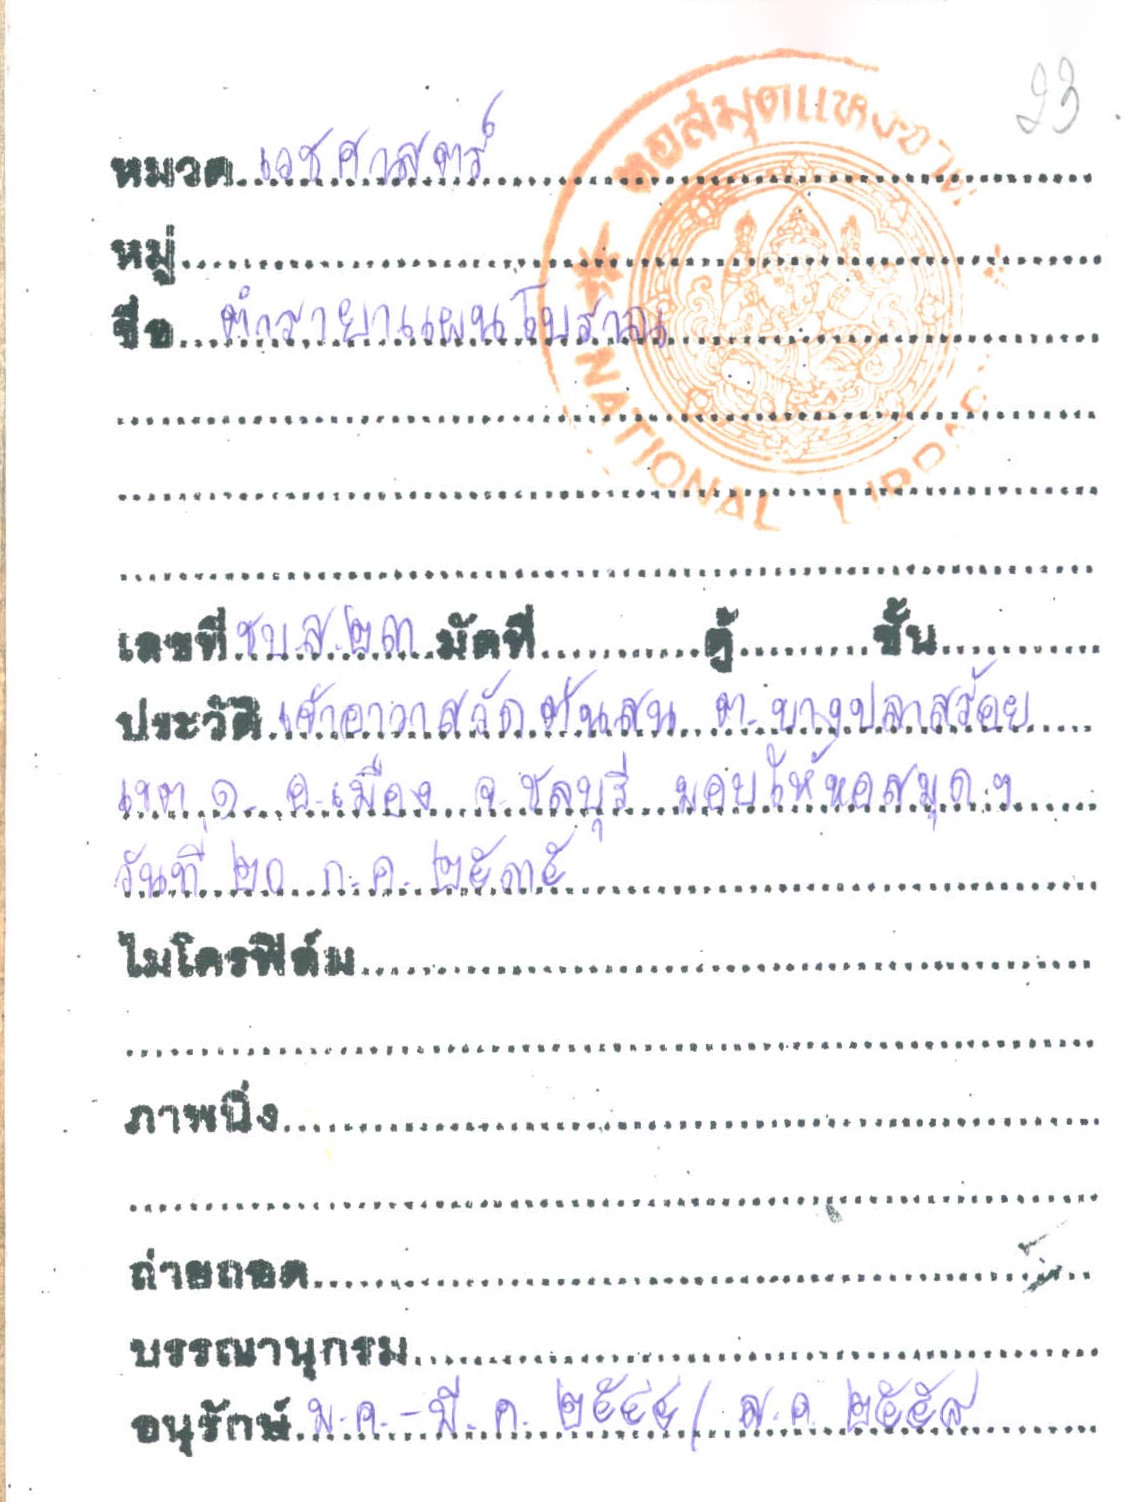 23
หอสมุดแห่งชาติ
NATIONAL LIBRA
หมวด เวชศาสตร์
หมู่
ชื่อ ตำรายาแผนโบราณ
เลขที่ ชบ.ส.๒๓ มัดที่ ตู้ ชั้น
ประวัติ เจ้าอาวาสวัดต้นสน ต.บางปลาสร้อย
เขต ๑ อ.เมือง จ.ชลบุรี มอบให้หอสมุดฯ
วันที่ ๒๐ ก.ค. ๒๕๓๕
ไมโครฟิล์ม
ภาพนิ่ง
ถ่ายถอด
บรรณานุกรม
อนุรักษ์ ม.ค.-มี.ค. ๒๕๔๔/ ส.ค. ๒๕๕๘